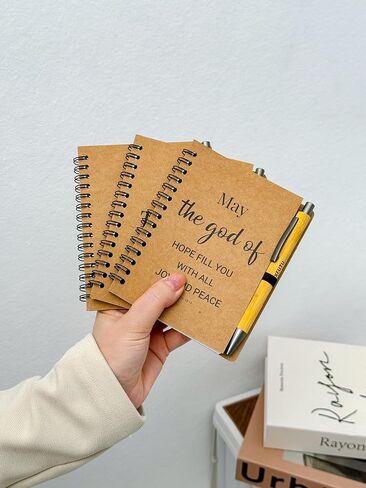 May
the god of
HOPE FILL YOU
WITH ALL
JOY AND PEACE
Rayon
Rayon
Urb